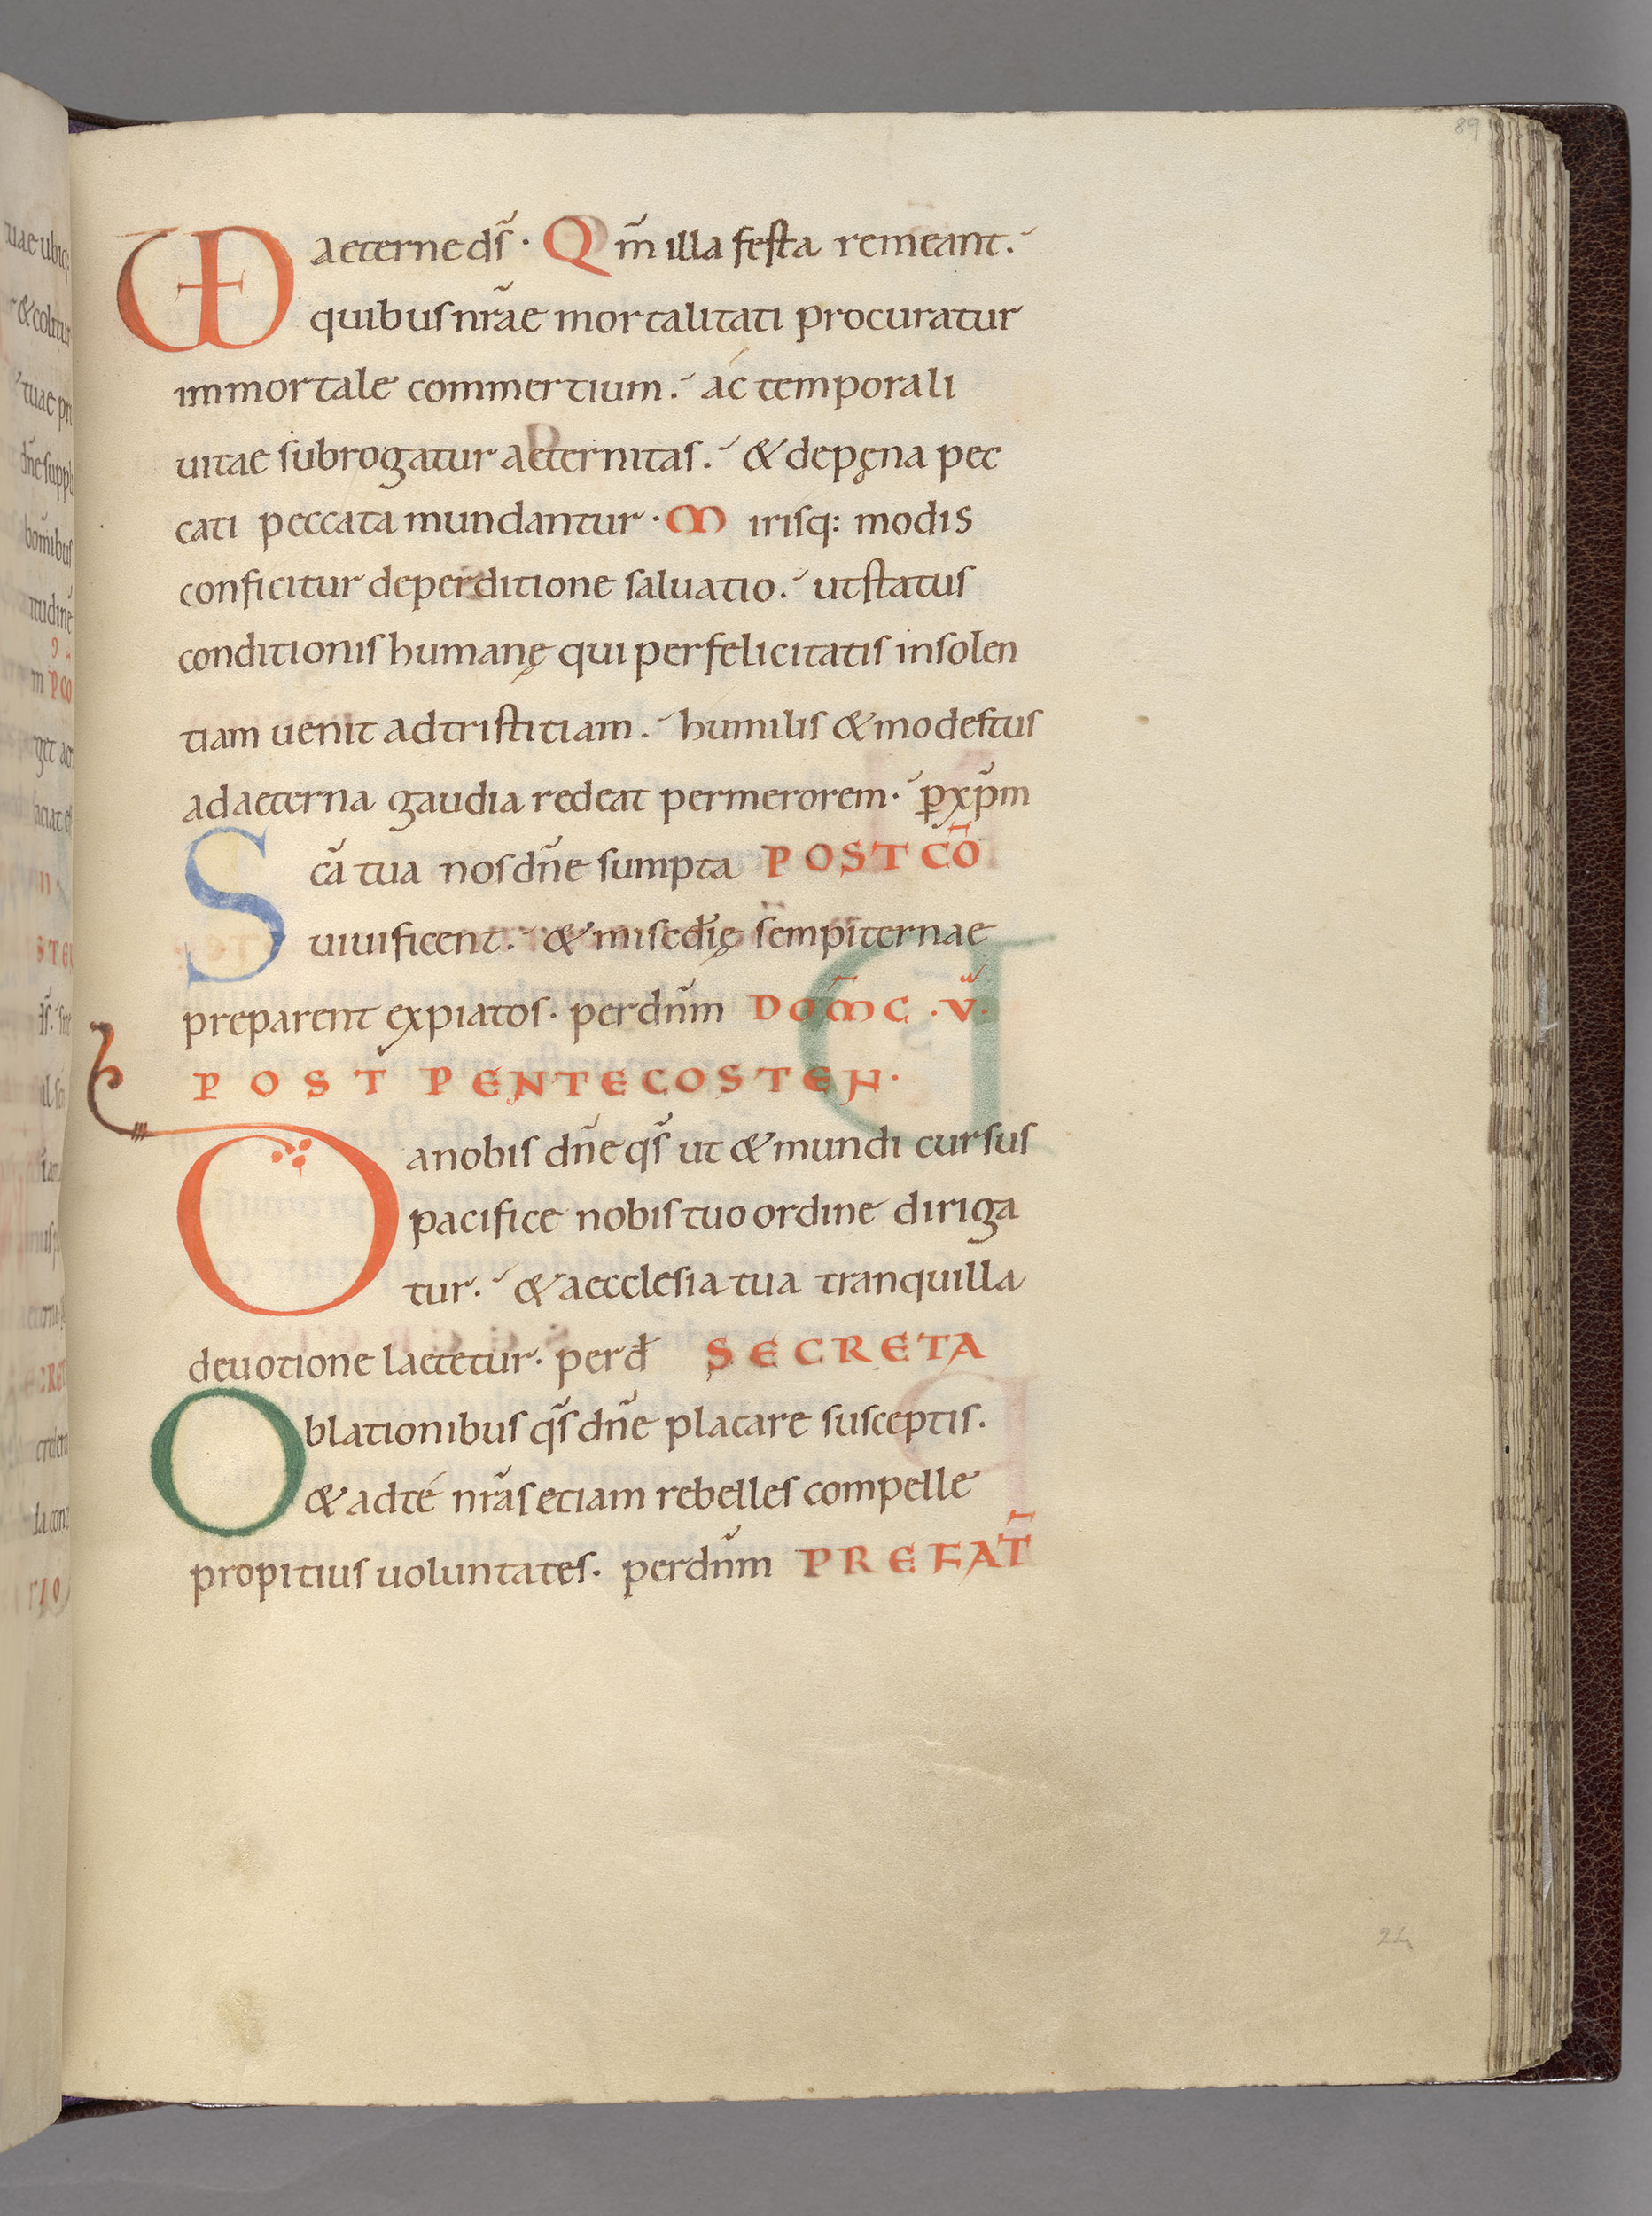 89
VD aeterne ds̄ · Qm̄ illa festa remeant.
quibus nr̄ae mortalitati procuratur
immortale commertium. ac temporali
uitae subrogatur aeternitas. & de pęna pec
cati peccata mundantur · Mirisq: modis
conficitur de perditione saluatio. ut status
conditionis humanę qui per felicitatis insolen
tiam uenit ad tristitiam. humilis & modestus
ad aeterna gaudia redeat per merorem. p̱ xp̄m
Sc̄a tua nos dn̄e sumpta POST CŌ
uiuificent. & misc̄dię sempiternae
preparent expiatos. per dn̄m DOM̄C . V.
POST PENTECOSTEN.
Da nobis dn̄e qs̄ ut & mundi cursus
pacifice nobis tuo ordine diriga
tur. & aecclesia tua tranquilla
deuotione laetetur. per d̄ SECRETA
Oblationibus qs̄ dn̄e placare susceptis.
& ad té nr̄as etiam rebelles compelle
propitius uoluntates. per dn̄m PREFAT̄
24